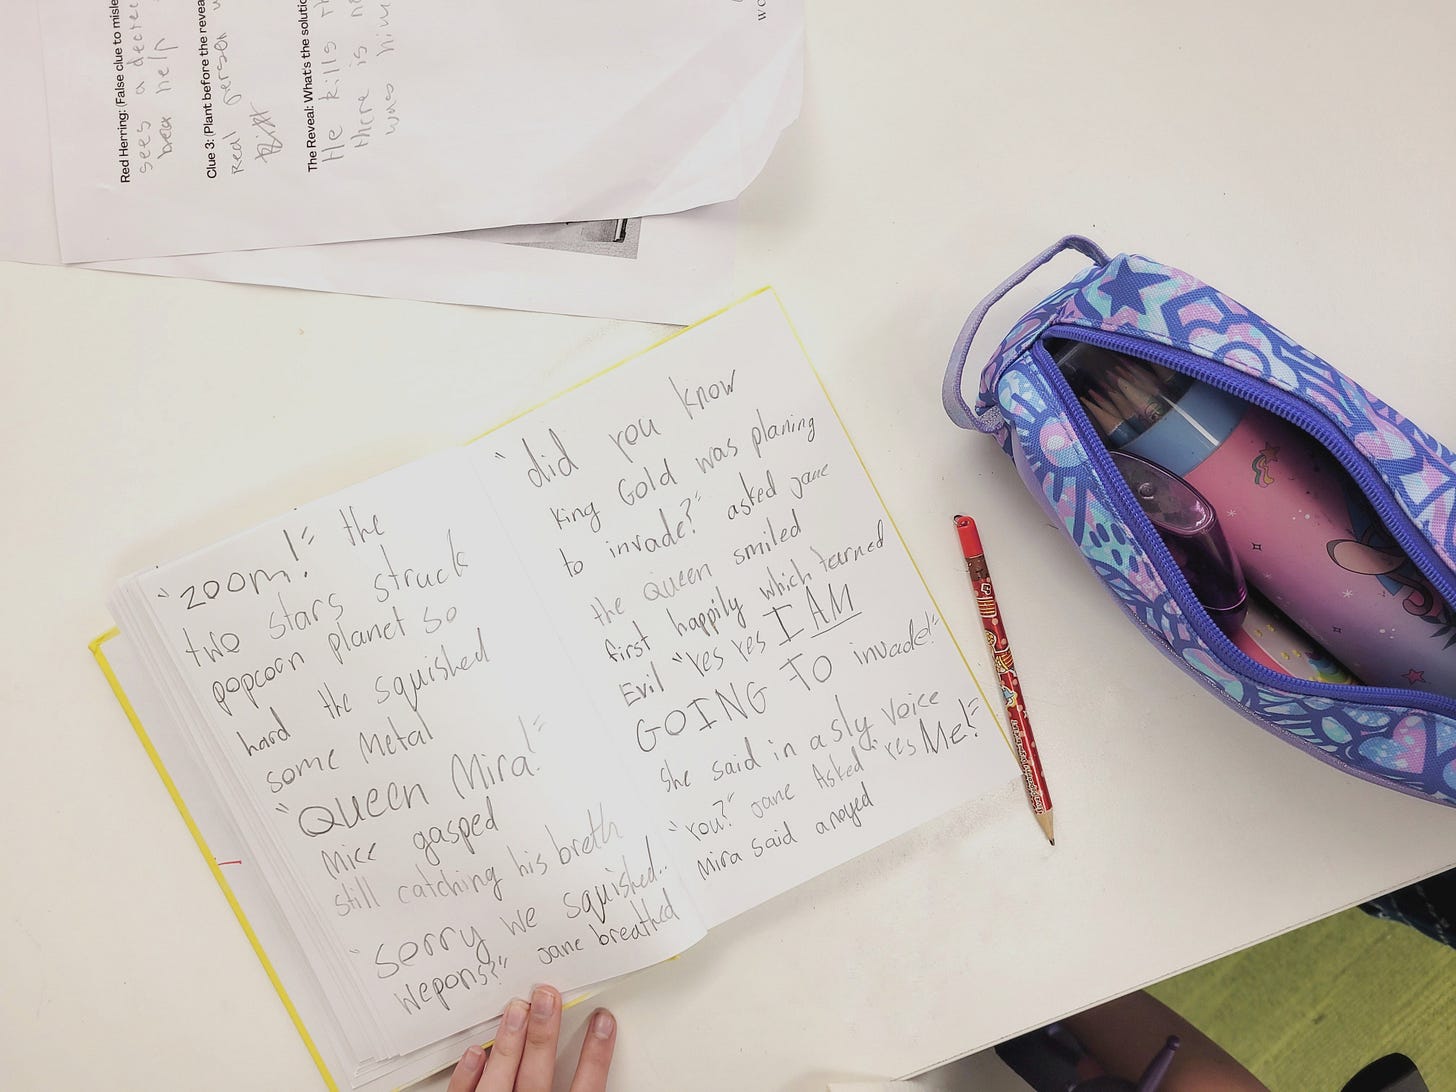 Red Herring: (False clue to misle
sees a detec
help
Clue 3: (Plant before the revea
Red person
The Reveal: What's the solutio
He kills th
there is n
was him
"zoom!" the
two stars struck
popcorn planet so
hard the squished
some Metal
"Queen Mira!"
Mice gasped
still catching his breth
"Serry we squished..
wepons?" Jane breathed
"did you know
king Gold was planing
to invade?" asked Jane
the Queen smiled
first happily which terned
Evil "Yes Yes I AM
GOING TO invade!"
She said in a sly voice
"You?" Jane Asked "Yes Me!"
Mira said anoyed